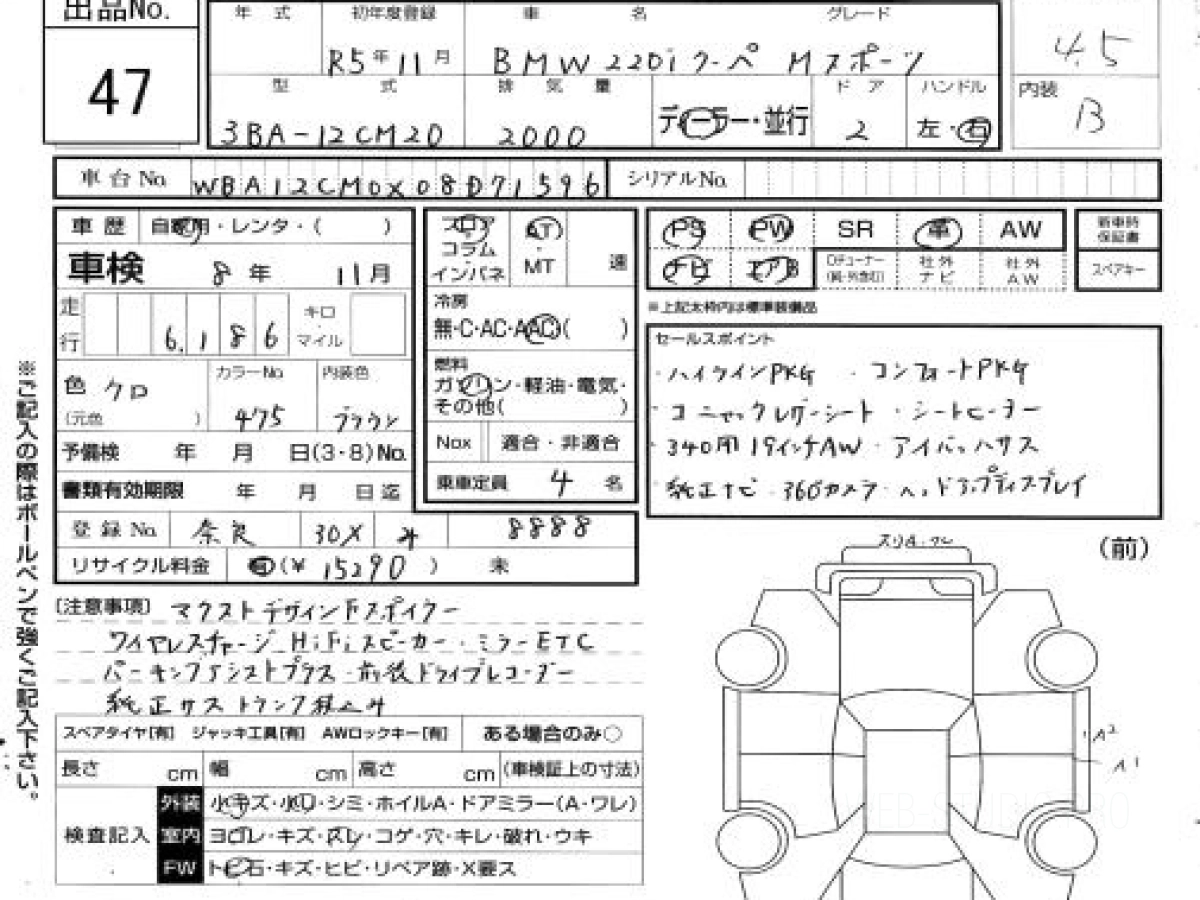 出品No.
47
年式 初年度登録 車名 グレード
R5年11月 BMW 220i クーペ Mスポーツ
4.5
型式 排気量 ディーラー・並行 ドア ハンドル
3BA-12CM20 2000 2 左・右
内装 B
車台No. WBA12CM0X08D71596 シリアルNo.
車歴 自家用・レンタ・( )
車検 8年 11月
走行 6,186 キロ・マイル
色 クロ
(元色 )
カラーNo 475
内装色 ブラウン
予備検 年 月 日(3・8)No.
書類有効期限 年 月 日迄
登録No. 奈良 30X 8888
リサイクル料金 (¥ 15290 ) 未
フロア
コラム
インパネ
AT
・
MT
速
冷房
無・C・AC・AAC( )
燃料
ガソリン・軽油・電気・
その他( )
Nox 適合・非適合
乗車定員 4 名
PS PW SR 革 AW
ナビ エアB 社外ナビ 社外AW
新車時保証書
スペアキー
※上記太枠内は標準装備品
セールスポイント
・ハイラインPKG ・コンフォートPKG
・コニャックレザーシート ・シートヒーター
・340用19インチAW ・アイバッハサス
・純正ナビ ・360°カメラ ・ヘッドアップディスプレイ
※ご記入の際はボールペンで強くご記入下さい。
(注意事項) マクストンデザインFスポイラー
ワイヤレスチャージ HiFiスピーカー・ミラーETC
パーキングアシストプラス・前後ドライブレコーダー
純正サス トランク積込み
スペアタイヤ[有] ジャッキ工具[有] AWロックキー[有] ある場合のみ○
長さ cm 幅 cm 高さ cm (車検証上の寸法)
検査記入
外装 小キズ・小凹・シミ・ホイルA・ドアミラー(A・ワレ)
室内 ヨゴレ・キズ・スレ・コゲ・穴・キレ・破れ・ウキ
FW トビ石・キズ・ヒビ・リペア跡・X要ス
(前)
A2
A1